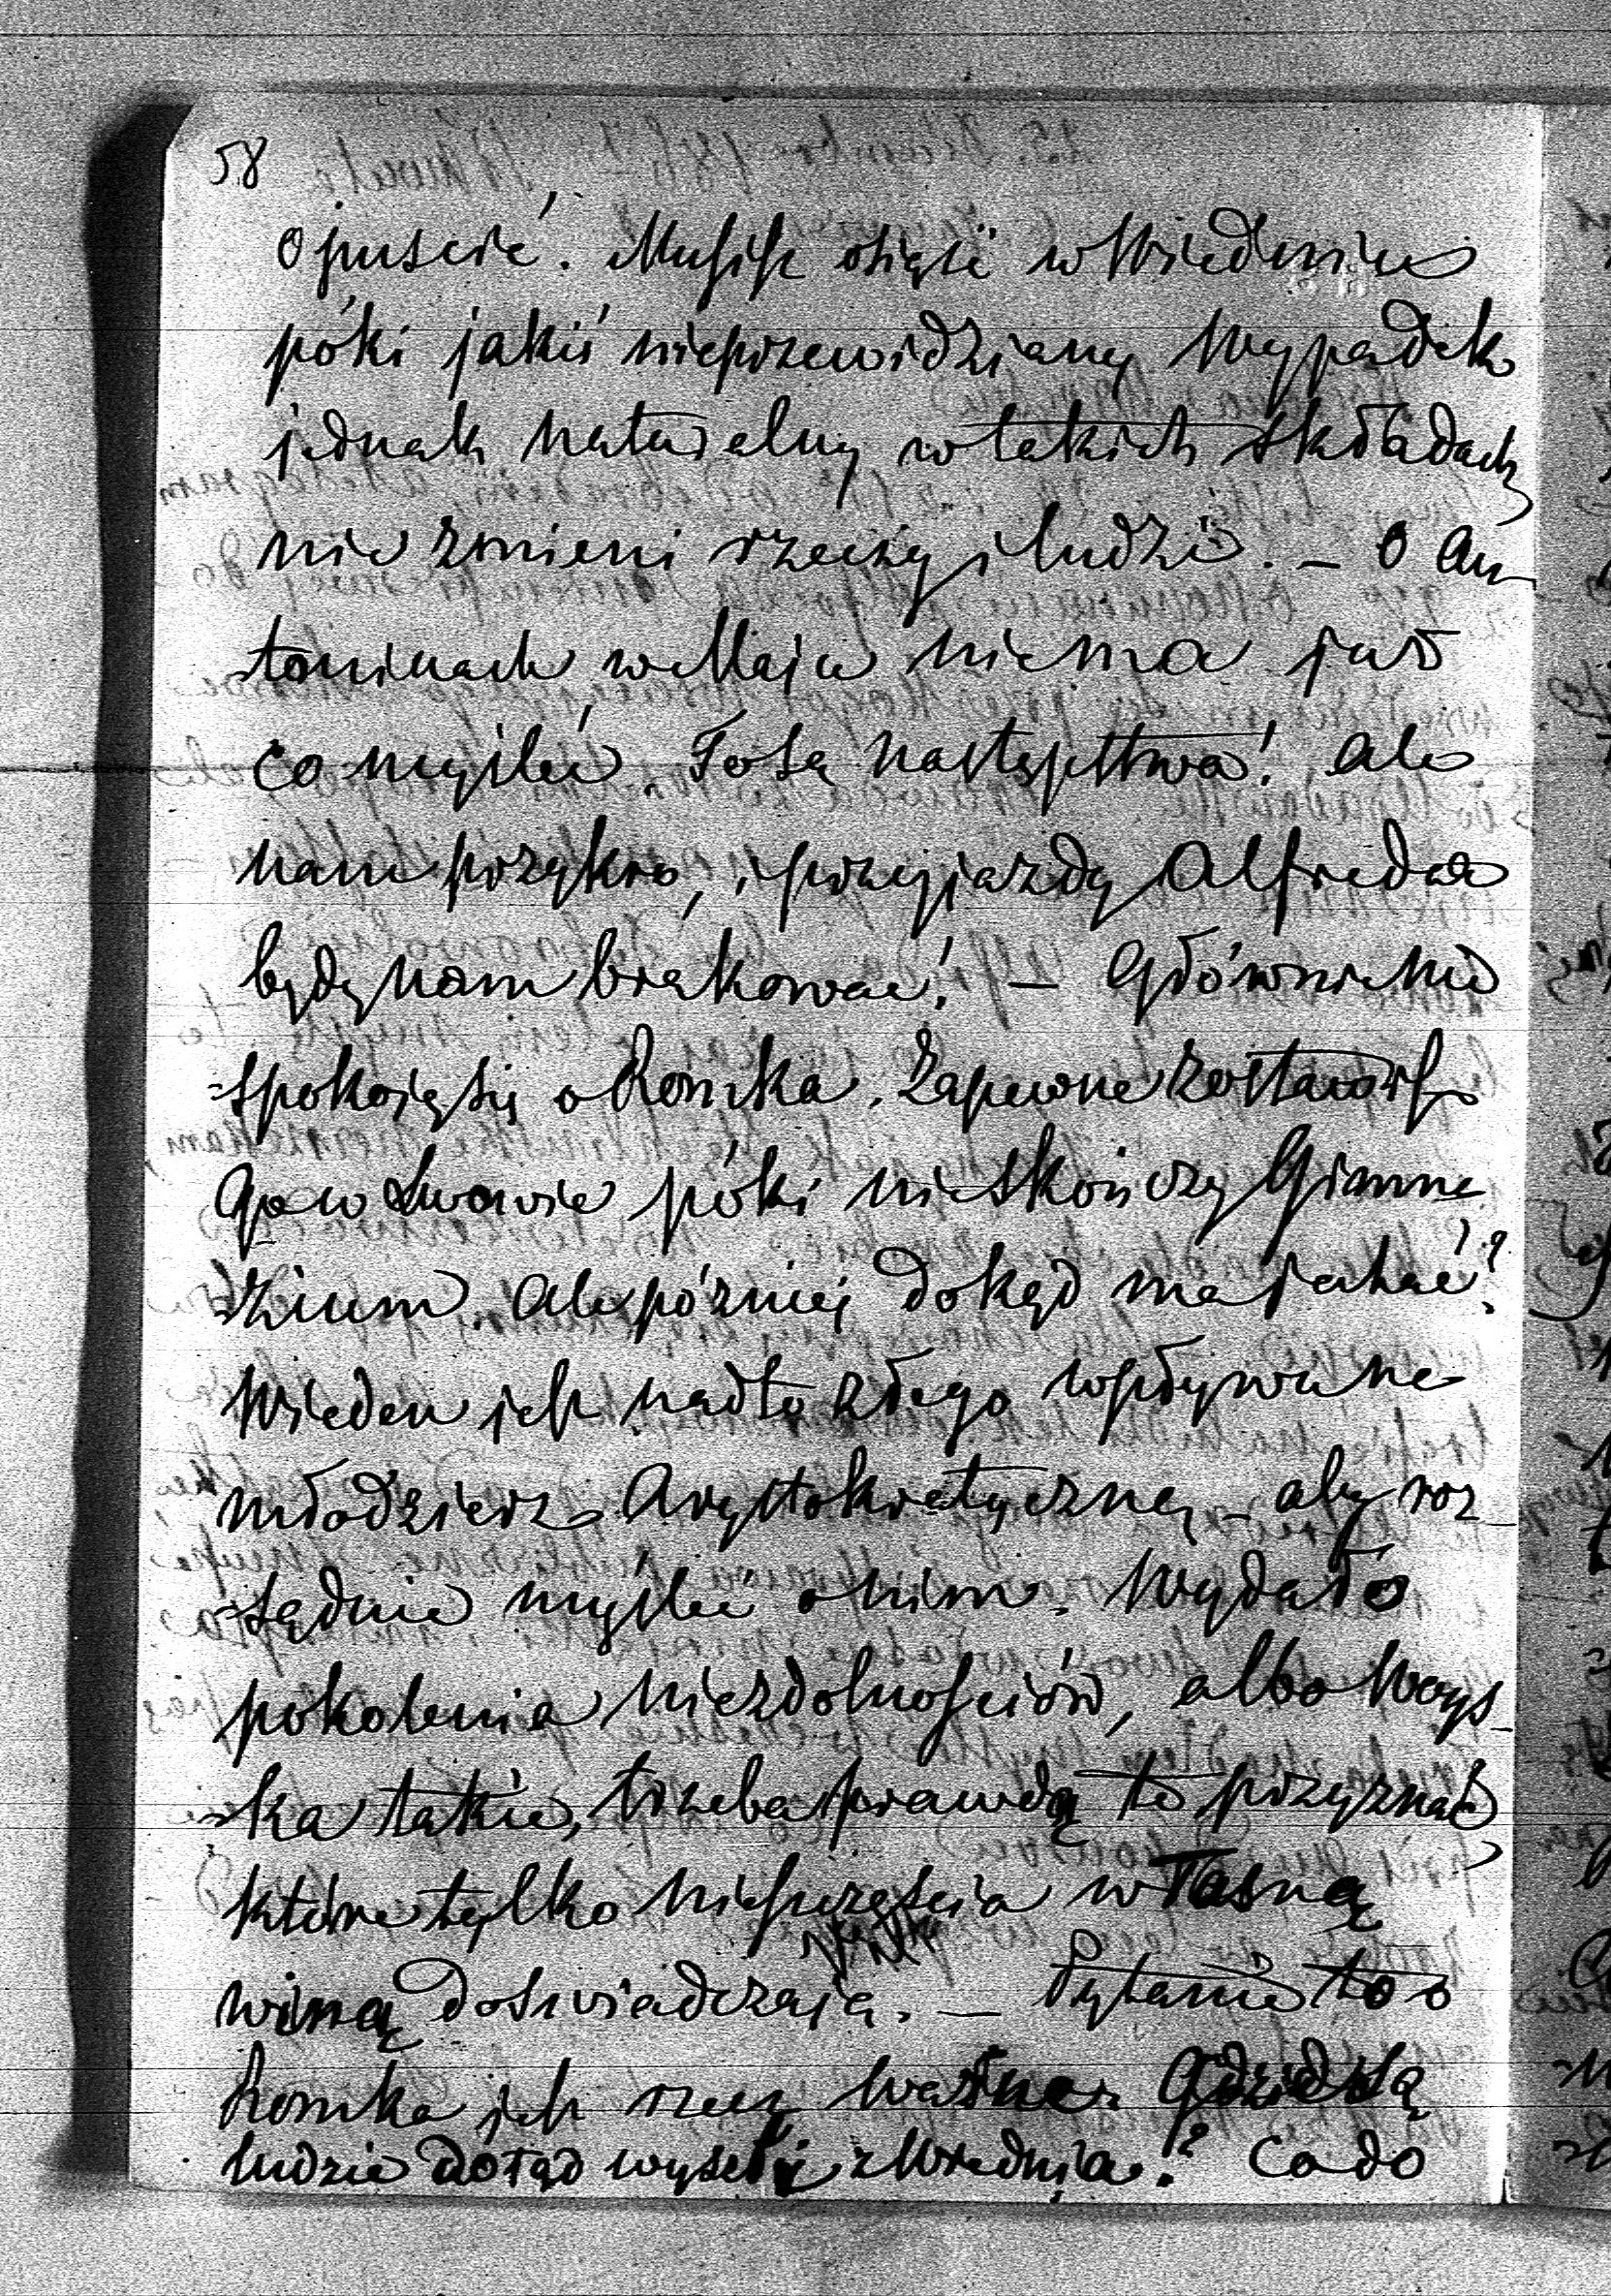 58
opuscić. Musisz osięść w Wiedniu
póki jakiś nieprzewidziany Wypadek
jednak naturalny w takich składach
nie zmieni rzeczy i ludzi. – O An-
toninach w Maju niema już
co myśleć. To są następstwa! ale
nam przykro, i przyjazdy Alfreda
będę nam brakować! – Głównie nie
spokoję się o Romka. Zapewne zostawisz
go w Lwowie póki nie skończy Gimna
zium. Ale później dokąd ma jechać?
Wieden jest nadto złego wpływu na
młodzierz Arystokratyczną – aby roz_
sądnie myśleć o nim. Wydało
pokolenia niezdolnościów, albo woys_
ka takie, trzeba prawdą to przyznać,
które tylko nieszczęścia własną
winą doswiadczają. – Pytanie to o
Romka jest rzecz ważna. Gdzie są
ludzie dotąd wyszli z Wiednia? Co do